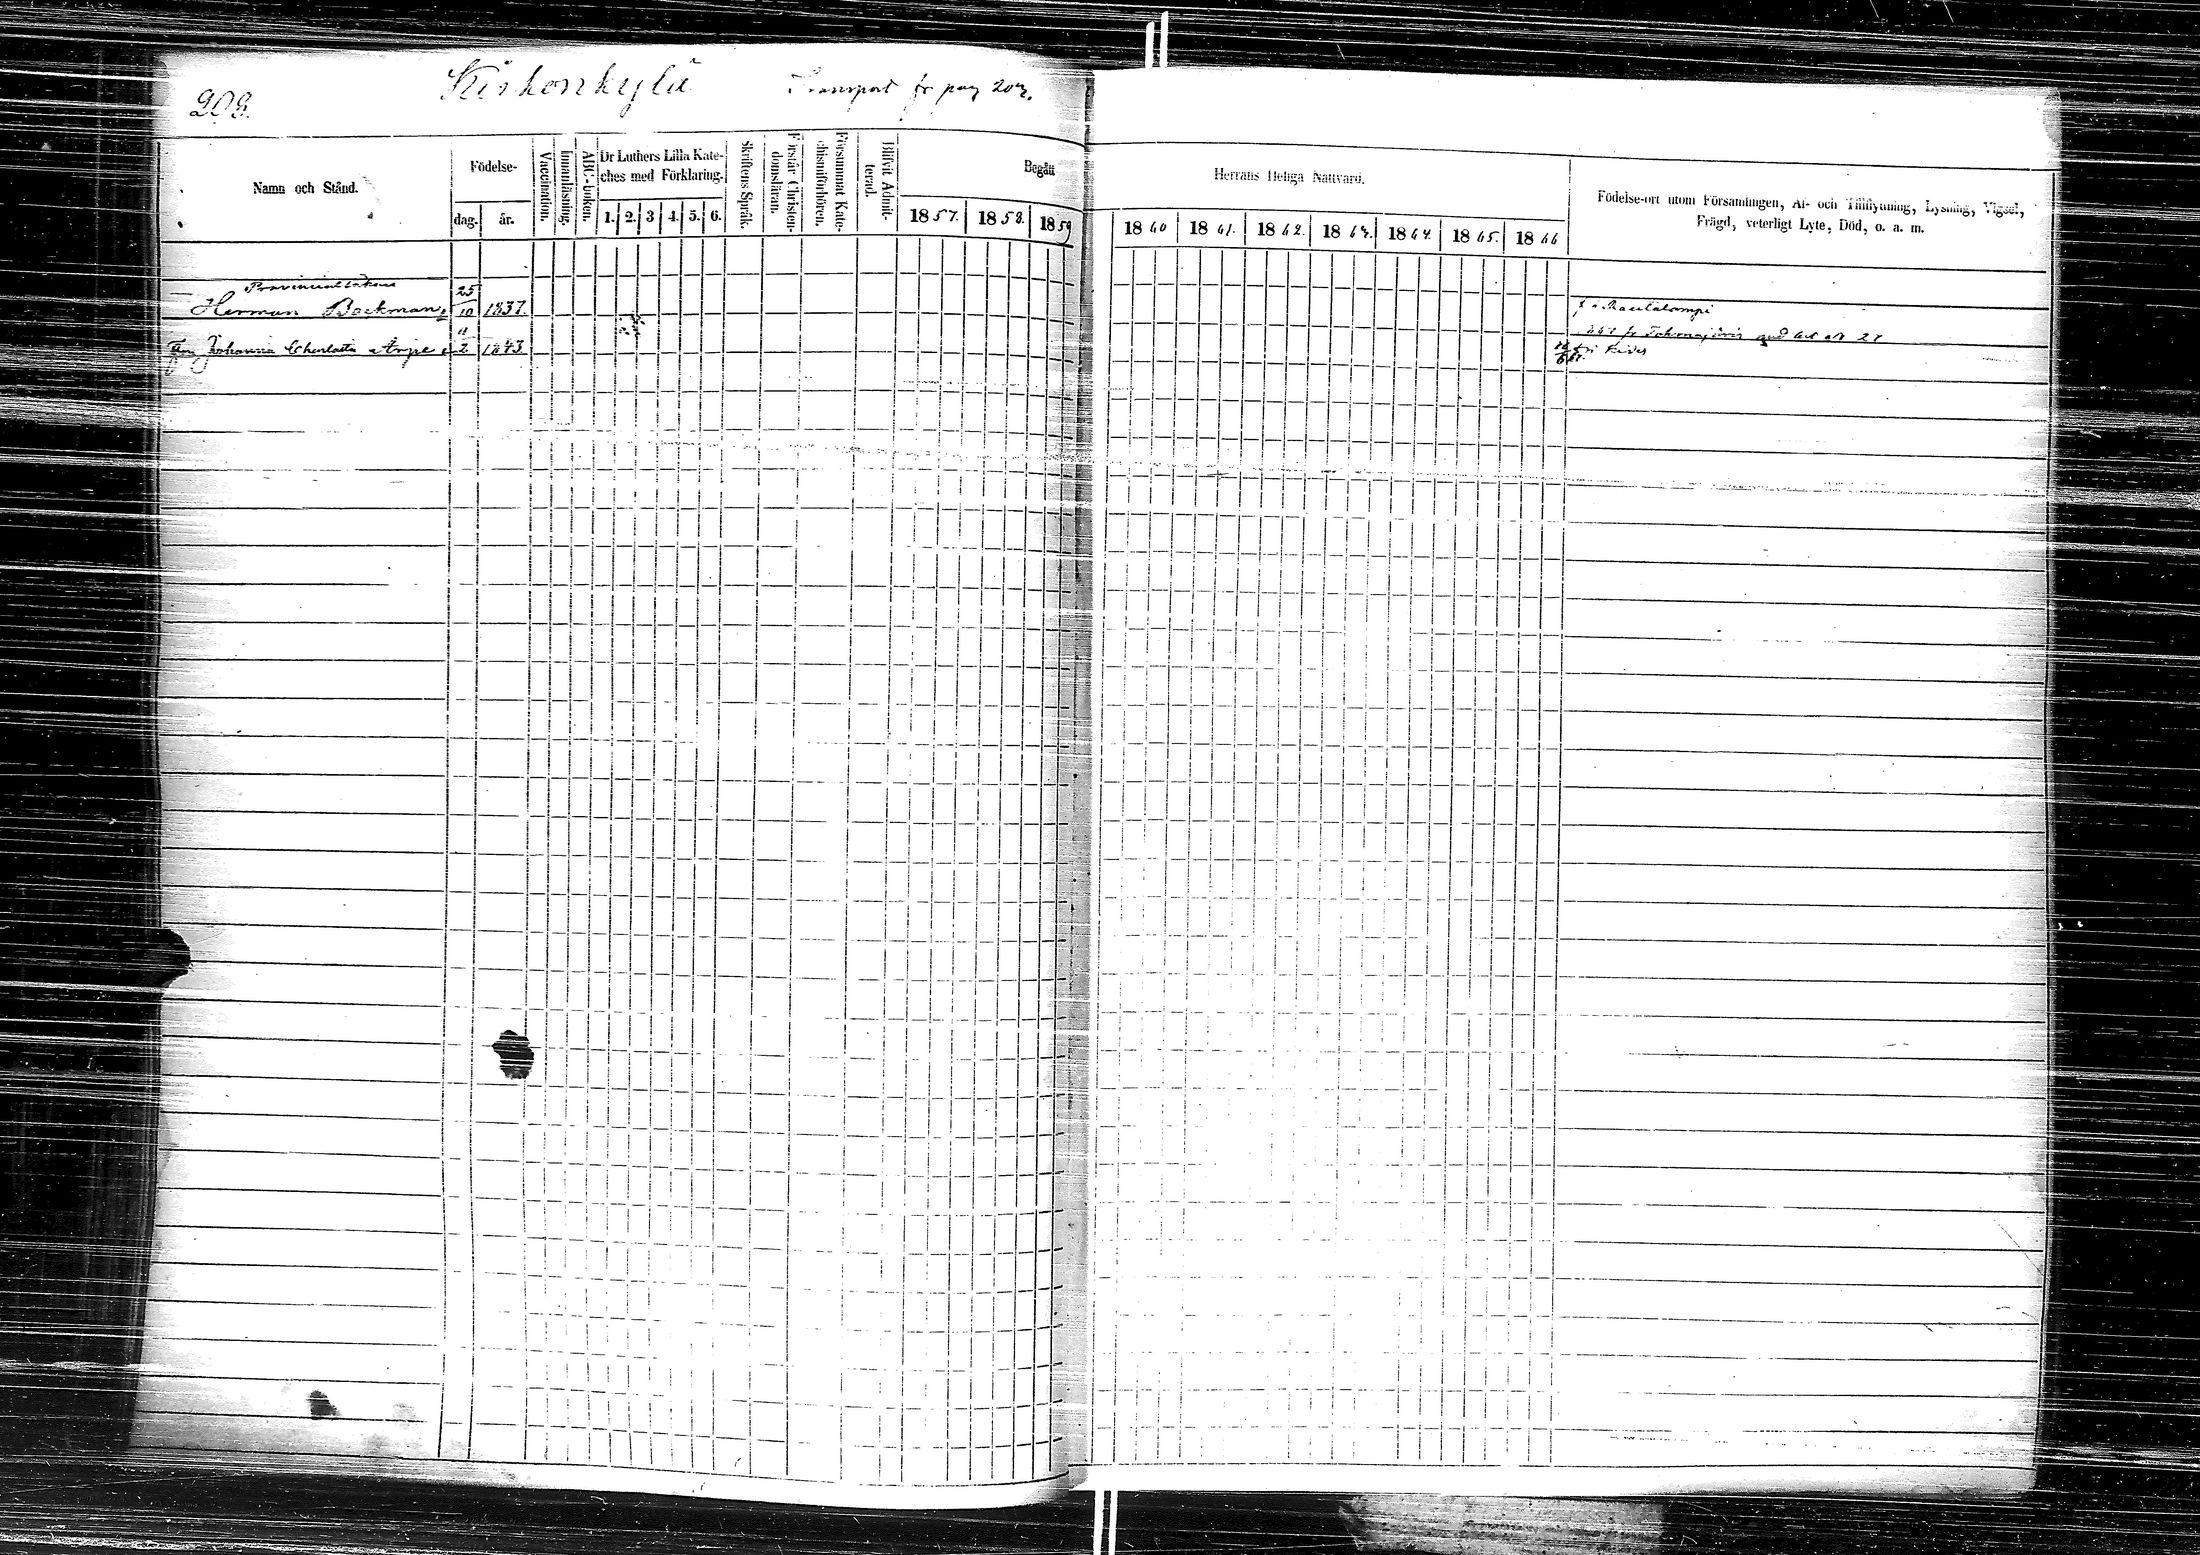 208.
Kirkonkylä
Transport fr pag 207.
Namn och Stånd.
Födelse-
dag. år.
Vaccination.
Innanläsning.
ABC-boken.
Dr Luthers Lilla Kate-
ches med Förklaring.
1. 2. 3 4. 5. 6.
Skriftens Språk.
Förstår Christen-
domsläran.
Försummat Kate-
chismiförhören.
Blifvit Admit-
terad.
Begått
1857. 1858. 1859
Herrans Heliga Nattvard.
1860 1861. 1862. 1863. 1864. 1865. 1866
Födelse-ort utom Församlingen, Af- och Tillflyttning, Lysning, Vigsel,
Frägd, veterligt Lyte, Död, o. a. m.
Provincialläkare
Herman Backman 25/10 1837.
f i Rautalampi
fr Tohmajärvi
Johanna Charlotta Arpe 2 1843
Kides